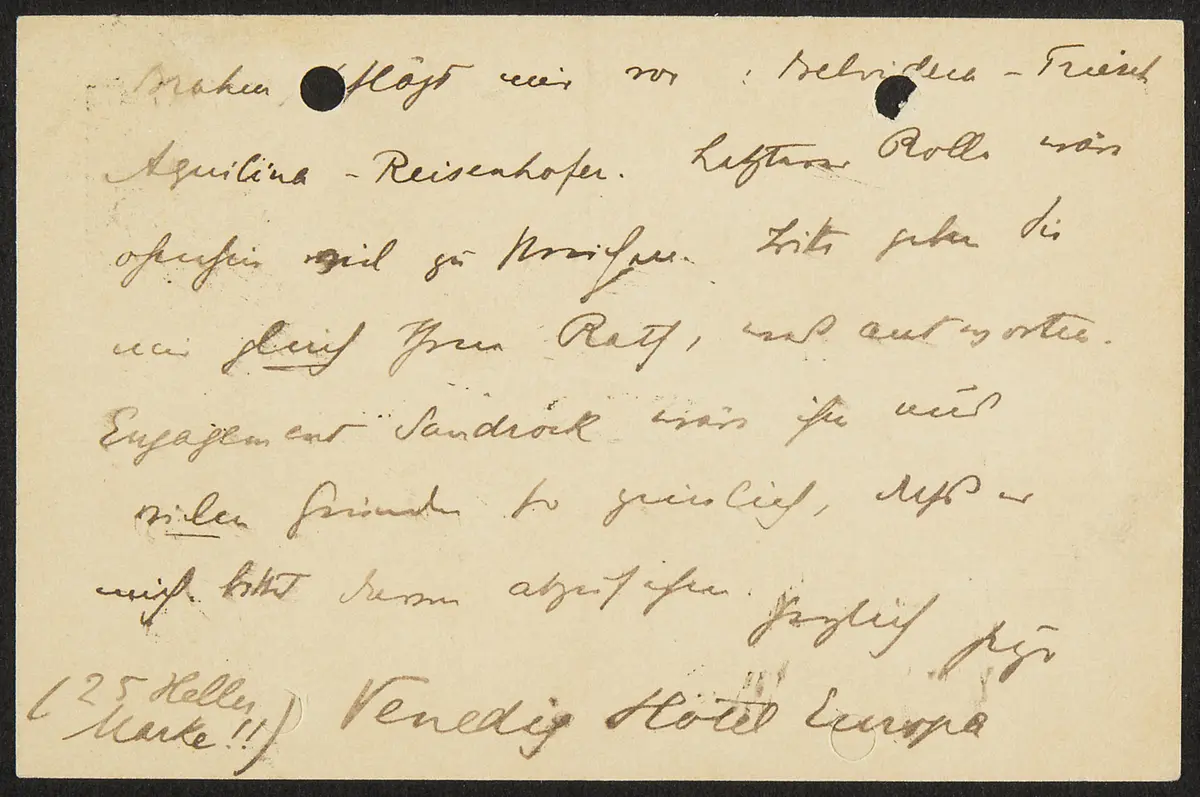 Brahm schlägt mir vor: Belvidera – Triesch
Aquilina – Reisenhofer. Letztere Rolle wäre
ohnehin viel zu streichen. Bitte geben Sie
mir gleich Ihren Rath, was antworten.
Engagement Sandrock wäre ihm aus
vielen Gründen so peinlich, daß er
mich bittet davon abzusehen. Herzlich Hugo
(25 Heller Marke!!) Venedig Hôtel Europa